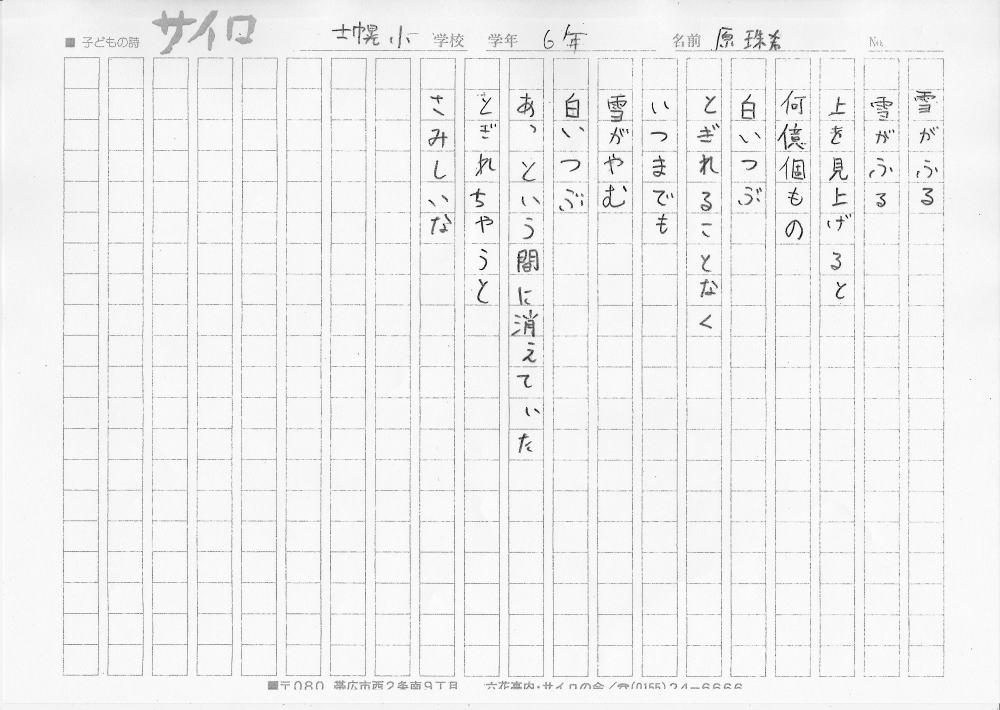 ■ 子どもの詩 サイロ 士幌小 学校 学年 6年 名前 原 珠希 No.
雪がふる
雪がふる
上を見上げると
何億個もの
白いつぶ
とぎれることなく
いつまでも
雪がやむ
白いつぶ
あっという間に消えていた
とぎれちゃうと
さみしいな
■〒080 帯広市西2条南9丁目 六花亭内・サイロの会/☎(0155)24-6666